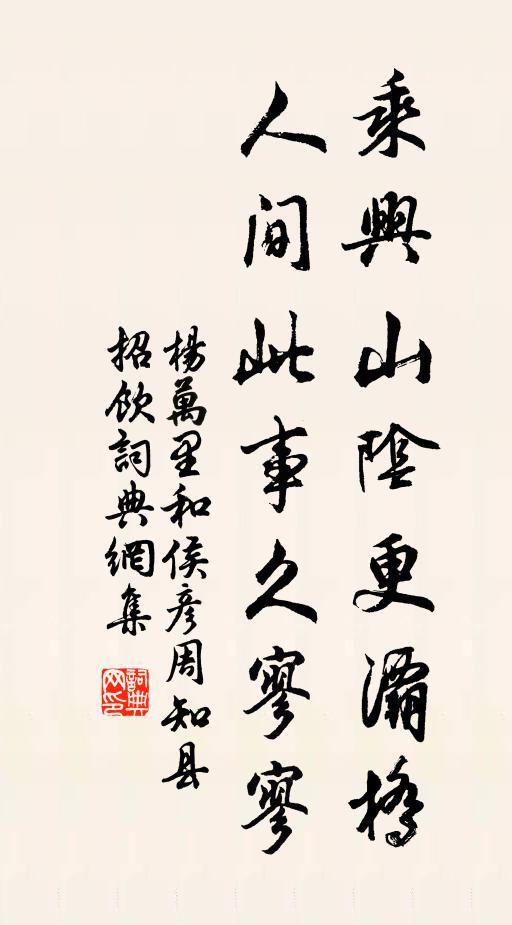 乘興山陰更灞橋
人間此事久寥寥
楊萬里和侯彥周知县
招飲詞典網集
詞典
网印